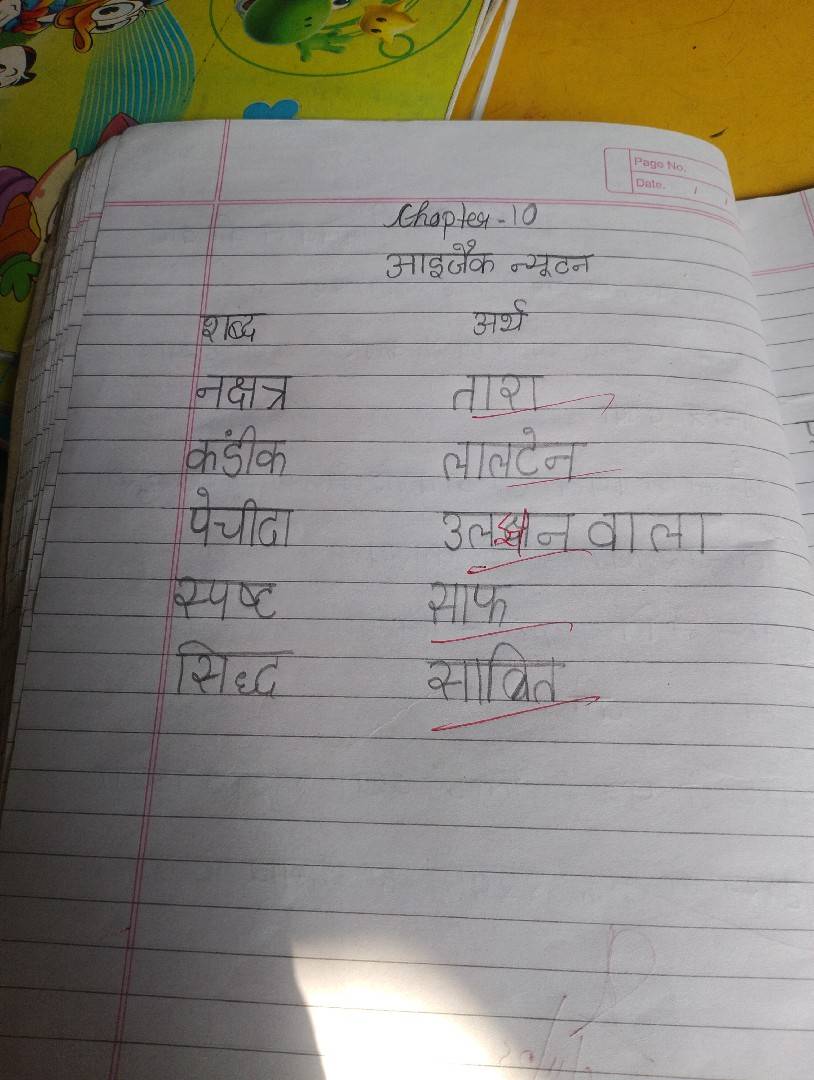 Page No.
Date.
Chapter-10
आइजैक न्यूटन
शब्द अर्थ
नक्षत्र तारा
कंडीक लालटेन
पेचीदा उलझन वाला
स्पष्ट साफ
सिद्ध साबित